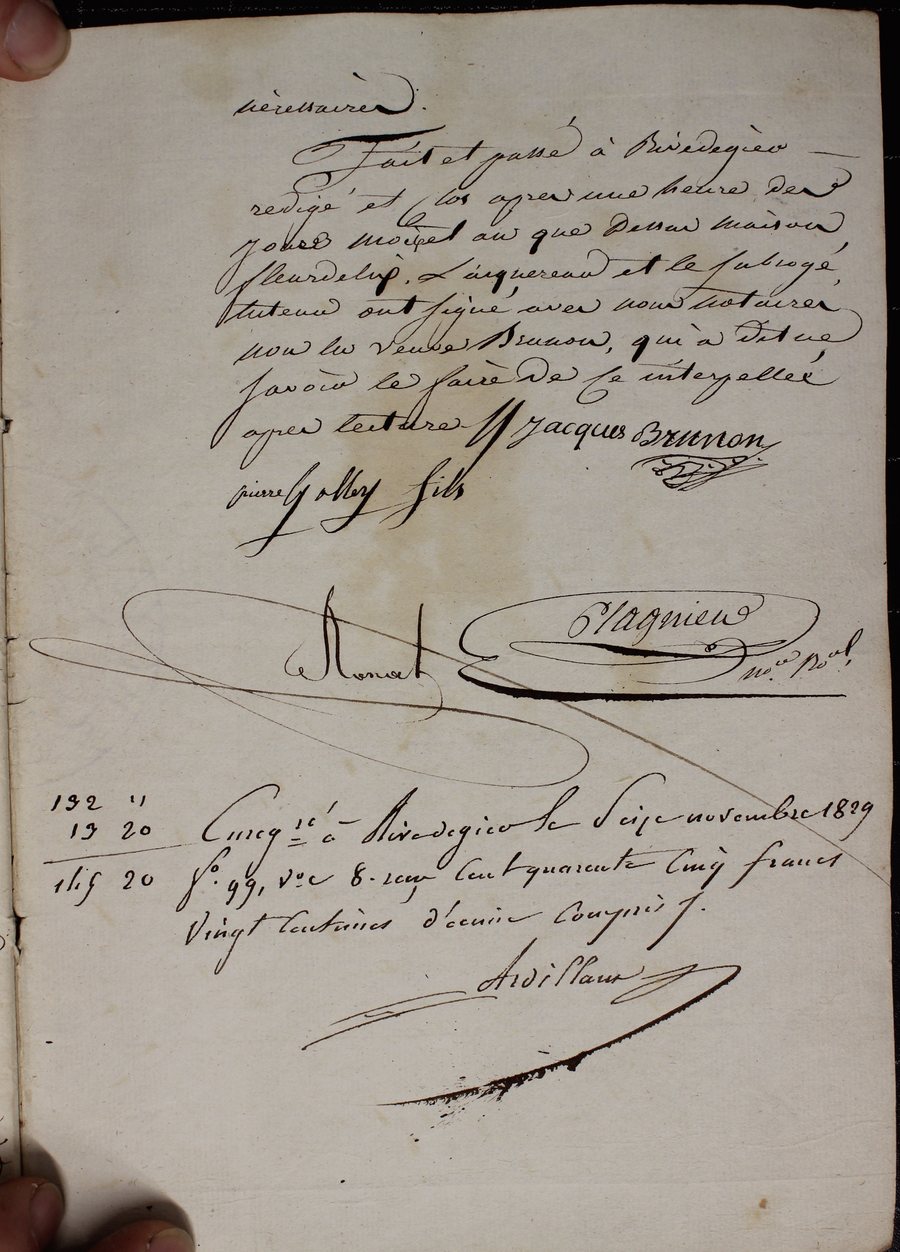 nécessaires.
Fait et passé à Rivedegier
redigé et clos apres une heure des
jours mois et an que dessus maison
fleurdelix. L'acquereur et le subrogé
tuteur ont signé avec nous notaires
non la veuve Brunon, qui a dit ne
savoir le faire de ce interpellée
apres lecture // Jacques Brunon
pierre Golley fils
Ronat Plagnieu
no.re Royal
132 "
13 20 Enreg.ré à Rivedegier le Seize novembre 1829
145 20 f.o 99, V.o c 8. reçu Cent quarante Cinq francs
Vingt Centimes d'écime Compris.
Ardillau